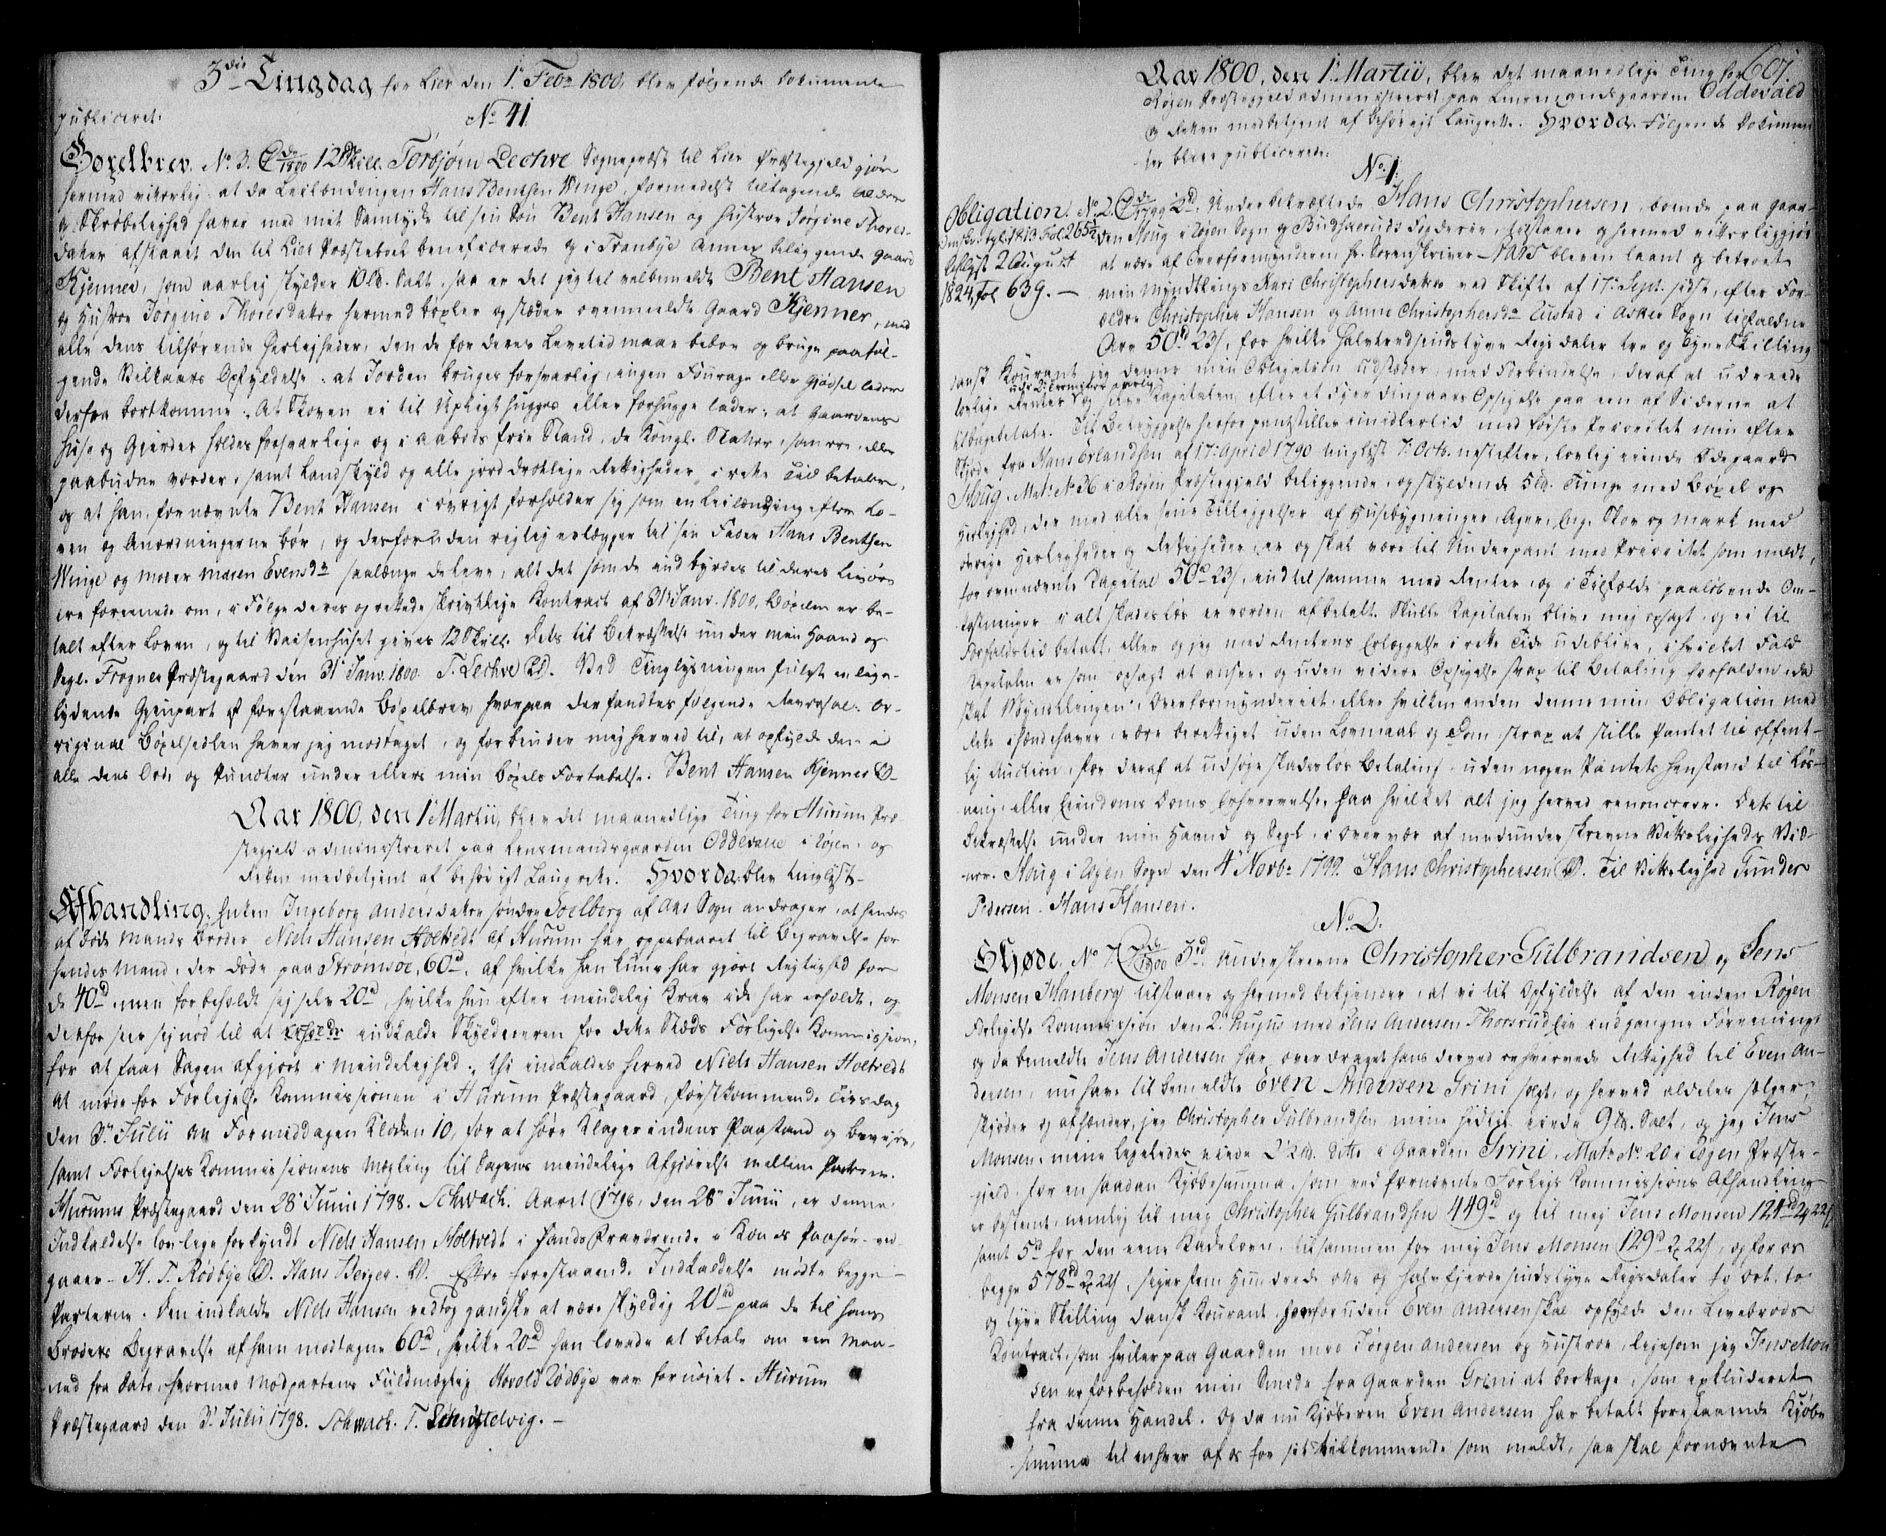 3die Tingdag for Lier den 1te Febr 1800, blev følgende Dokumenter
publiceret.
No 41.
Boxelbrev. No 3. 1800 12 Skill. Torbjørn Lechve Sogneprest til Lier Præstegield gjør
hermed vitterlig: at da Leilændingen Hans Bentsen Winge, formedelst tiltagende Alder
og Skrøbelighed haver med mit Samtykke til sin Søn Bent Hansen og Hustroe Jørgine Thores-
datter afstaaet den til Lier Præstebord beneficerede og i Tranbye Annex beliggende Gaard
Kjenner, som aarlig skylder 10 Lb. Salt, saa er det jeg til velbemeldte Bent Hansen
og Hustroe Jørgine Thoresdatter hermed bøxler og fæster ovenmeldte Gaard Kjenner, med
alle dens tilhørende Herligheder, den de for deres Levetid maae beboe og bruge paa føl-
gende Vilkaars Opfyldelse: at Jorden bruges forsvarlig, ingen Fourage eller Gjødsel lader
derfra bortkomme: At Skoven ei til Upligt hugges eller forhugge lader: at Gaardens
Huse og Gjerder holdes forsvarlige og i aabods frie Stand, de Kongl. Skatter, som ere eller
paabudne vorder, samt Landskyld og alle jorddrotlige Rettigheder i rette Tid betaler,
og at han, fornævnte Bent Hansen i øvrigt forholder sig som en Leilænding efter Lo-
ven og Anordningerne bør, og derforuden rigtig erlægger til sin Fader Hans Bentsen
Winge og Moder Maren Evensdr saalænge de leve, alt det som de indbyrdes til deres Livøre
ere foreenede om, i Følge deres oprettede skriftlige Kontract af 31 Janv. 1800. Bøxelen er be-
talt efter Loven, og til Vaisenhuset gives 12 Skill. Dets til Bekræftelse under min Haand og
Segl. Frogner Præstegaard den 31 Janv. 1800. T. Lechve (LS). Ved Tinglysningen fulgte en lige-
lydende Gjenpart af forestaaende Bøxelbrev hvorpaa der fandtes følgende Revers: Or-
riginal Bøxelsedlen haver jeg modtaget, og forbinder mig herved til, at opfylde den i
alle dens Ord og Puncter under ellers min Bøxels Fortabelse. Bent Hansen Kjenner (LS)
Aar 1800, den 1te Martii, blev det maanedlige Ting for Hurum Præ-
stegield administreret paa Lensmandsgaarden Oddevald i Røgen, og
Retten medbetjent af behørigt Laugrette. Hvorda blev tinglyst
Afhandling. Enken Ingeborg Andersdatter søndre Soelberg af Aas Sogn andrager, at hendes
afdøde Mands Broder Niels Hansen Holtvedt af Hurum har oppebaaret til Begravelse for
hendes Mand, der døde paa Strømsøe, 60rd, af hvilke han kune har gjort Rigtighed for
de 40rd, men forbeholdt sig selv 20rd, hvilke hun efter mindelig Krav ikke har erholdt, og
derfor seer sig nød til at indkalde Skyldneren for dette Stæds Forligelse Kommission,
for at faae Sagen afgjort i Mindelighed; thi indkaldes herved Niels Hansen Holtvedt
at møde for Forligelse Kommissionen i Hurum Præstegaard, førstkommende Tirsdag
den 3. Julii om Formiddagen Klokken 10, for at høre Klagerindens Paastand og Beviser,
samt Forligelses Kommissionens Mægling til Sagens mindelige Afgjørelse mellem Parterne.
Hurums Præstegaard den 28 Junii 1798. Schwach. Aaret 1798, den 28 Junii, er denne
Indkaldelse lovlige forkyndt Niels Hansen Holtvedt i hands fraværende i Kones Paahør ved-
gaaer H. T. Rødbye (LS). Hans Berger (LS). Efter forestaaende Indkaldelse mødte begge
Parterne. Den indkaldte Niels Hansen vedtog gandske at være skyldig 20rd paa de til hans
Broders Begravelse af ham modtagne 60rd, hvilke 20rd han lovede at betale om een Maa-
ned fra Dato, hvormed Modpartens Fuldmægtig Harold Rødbye var fornøiet. Hurum
Præstegaard den 3. Julii 1798. Schwach. T.
Aar 1800, den 1te Martii, blev det maanedlige Ting for 601.
Røgen Præstegield administreret paa Lensmandsgaarden Oddevald
og Retten medbetjent af behørigt Laugrette. Hvorda følgende Dokumen-
ter bleve publicerede:
No 1.
Obligation. No 2. 1799 2rd. Underskrevne Hans Christophersen, boende paa Gaar-
den Houg i Røgen Sogn og Budskeruds Fogderie, tilstaaer og hermed vitterliggjør
at være af Overformynderen Hr. Sorenskriver blevet laant og betroet
aflyst 2 August
1824, fol 639. —
min Myndlings Kari Christophersdatter ved Skifte af 17 Sept. sidst, efter For-
ældre Christopher Hansen og Anne Christophersdr Custad i Asker Sogn tilfaldne
Arv 50rd 23s, for hvilke halvtredsindstyve Rigsdaler tre og tyve Skilling
dansk Kourant jeg denne min Obligation udstæder, med Forbindelse, deraf at udreede
lovlige Renter og Kapitalen efter et Fjerdingaars Opsigelse paa een af Siderne at
tilbagebetale. Til Betryggelse herfor pantstiller imidlertid med første Prioritet min efter
Skjøde fra Hans Erlandsen af 17 April 1790 tinglyst 7 Octb. nestefter, lovlig eiende Odegaard
Houg, Mat. No 36 i Røgen Præstegield beliggende, og skyldende 5 Lb. Tunge med Bøxel og
Herlighed, der med alle sine Tilleggelser af Husebygninger, Ager, Eng, Skov og Mark med
øvrige Herligheder og Rettigheder er og skal være til Underpant med Prioritet som meldt,
for ovennævnte Kapital 50rd 23s, indtil samme med Renter, og i Tilfælde paaløbende Om-
kostninger i alt skadesløs er vorden afbetalt. Skulle Kapitalen blive mig opsagt, og ei til
Forfaldstid betalt, eller og jeg med Rentens Erlæggelse i rette Tide udeblive, i hvilket Fald
Kapitalen er som opsagt at ansee, og uden videre Opsigelse strax til Betaling forfalden, da
skal Myndlingen, Overformynderiet, eller hvilken anden denne min Obligation med
Rette i Hænde haver, være berettiget uden Lovmaal og Dom strax at stille Pantet til offent-
lig Auction, for deraf at udsøge skadesløs Betaling, uden nogen Pantets Henstand til Løs-
ning, eller Eiendoms Doms Erhvervelse, paa hvilket alt jeg herved renoncerer. Dets til
Bekræftelse under min Haand og Segl, i overvær af medunderskrevne Vitterligheds Vid-
ner. Houg i Røgen Sogn den 4 Novbr 1799. Hans Christophersen (LS). Til Vitterlighed Gunder
Pedersen. Hans Hansen.
No 2.
Skjøde. No 7. 1800 3rd. Underskrevne Christopher Gulbrandsen og Jens
Monsen Hanberg tilstaaer og hermed bekjender, at vi til Opfyldelse af den inden Røgen
Forligelse Kommission den 2 August med Jens Andersen Thorsrud indgangne Foreening,
og da bemeldte Jens Andersen har overdraget hans derved erhvervede Rettighed til Even An-
dersen, nu have til bemeldte Even Andersen Grini solgt, og herved aldeles sælger,
skjøder og afhænder, jeg Christopher Gulbrandsen mine hidtil eiede 9 Lb. Salt, og jeg Jens
Monsen, mine ligeledes eiede 2½ Lb. ditto i Gaarden Grini, Matr. No 20 i Røgen Præste-
gield, for en saadan Kjøbesumma, som ved fornævnte Forligs Kommissions Afhandling
er bestemt, nemlig til mig Christopher Gulbrandsen 449rd og til mig Jens Monsen 124rd 2z 22s
samt 5rd for den eene Kakelovn, tilsammen for mig Jens Monsen 129rd 2z 22s, og for os
begge 578rd 2z 22s, siger fem Hundrede otte og halvfjerdesindstyve Rigsdaler to Ort, to
og tyve Skilling dansk Kourant, foruden Even Andersen skal opfylde den Levebrøds
Kontract, som hviler paa Gaarden med Jørgen Andersen og Hustroe, ligesom jeg Jens Mon-
sen er forbeholden min Smede fra Gaarden Grini at borttage, som exkluderet
fra denne Handel. Og da nu Kjøberen Even Andersen har betalt forestaaende Kjøbe
summa til enhver af os for sit tilkommende som meldt, saa skal fornævnte